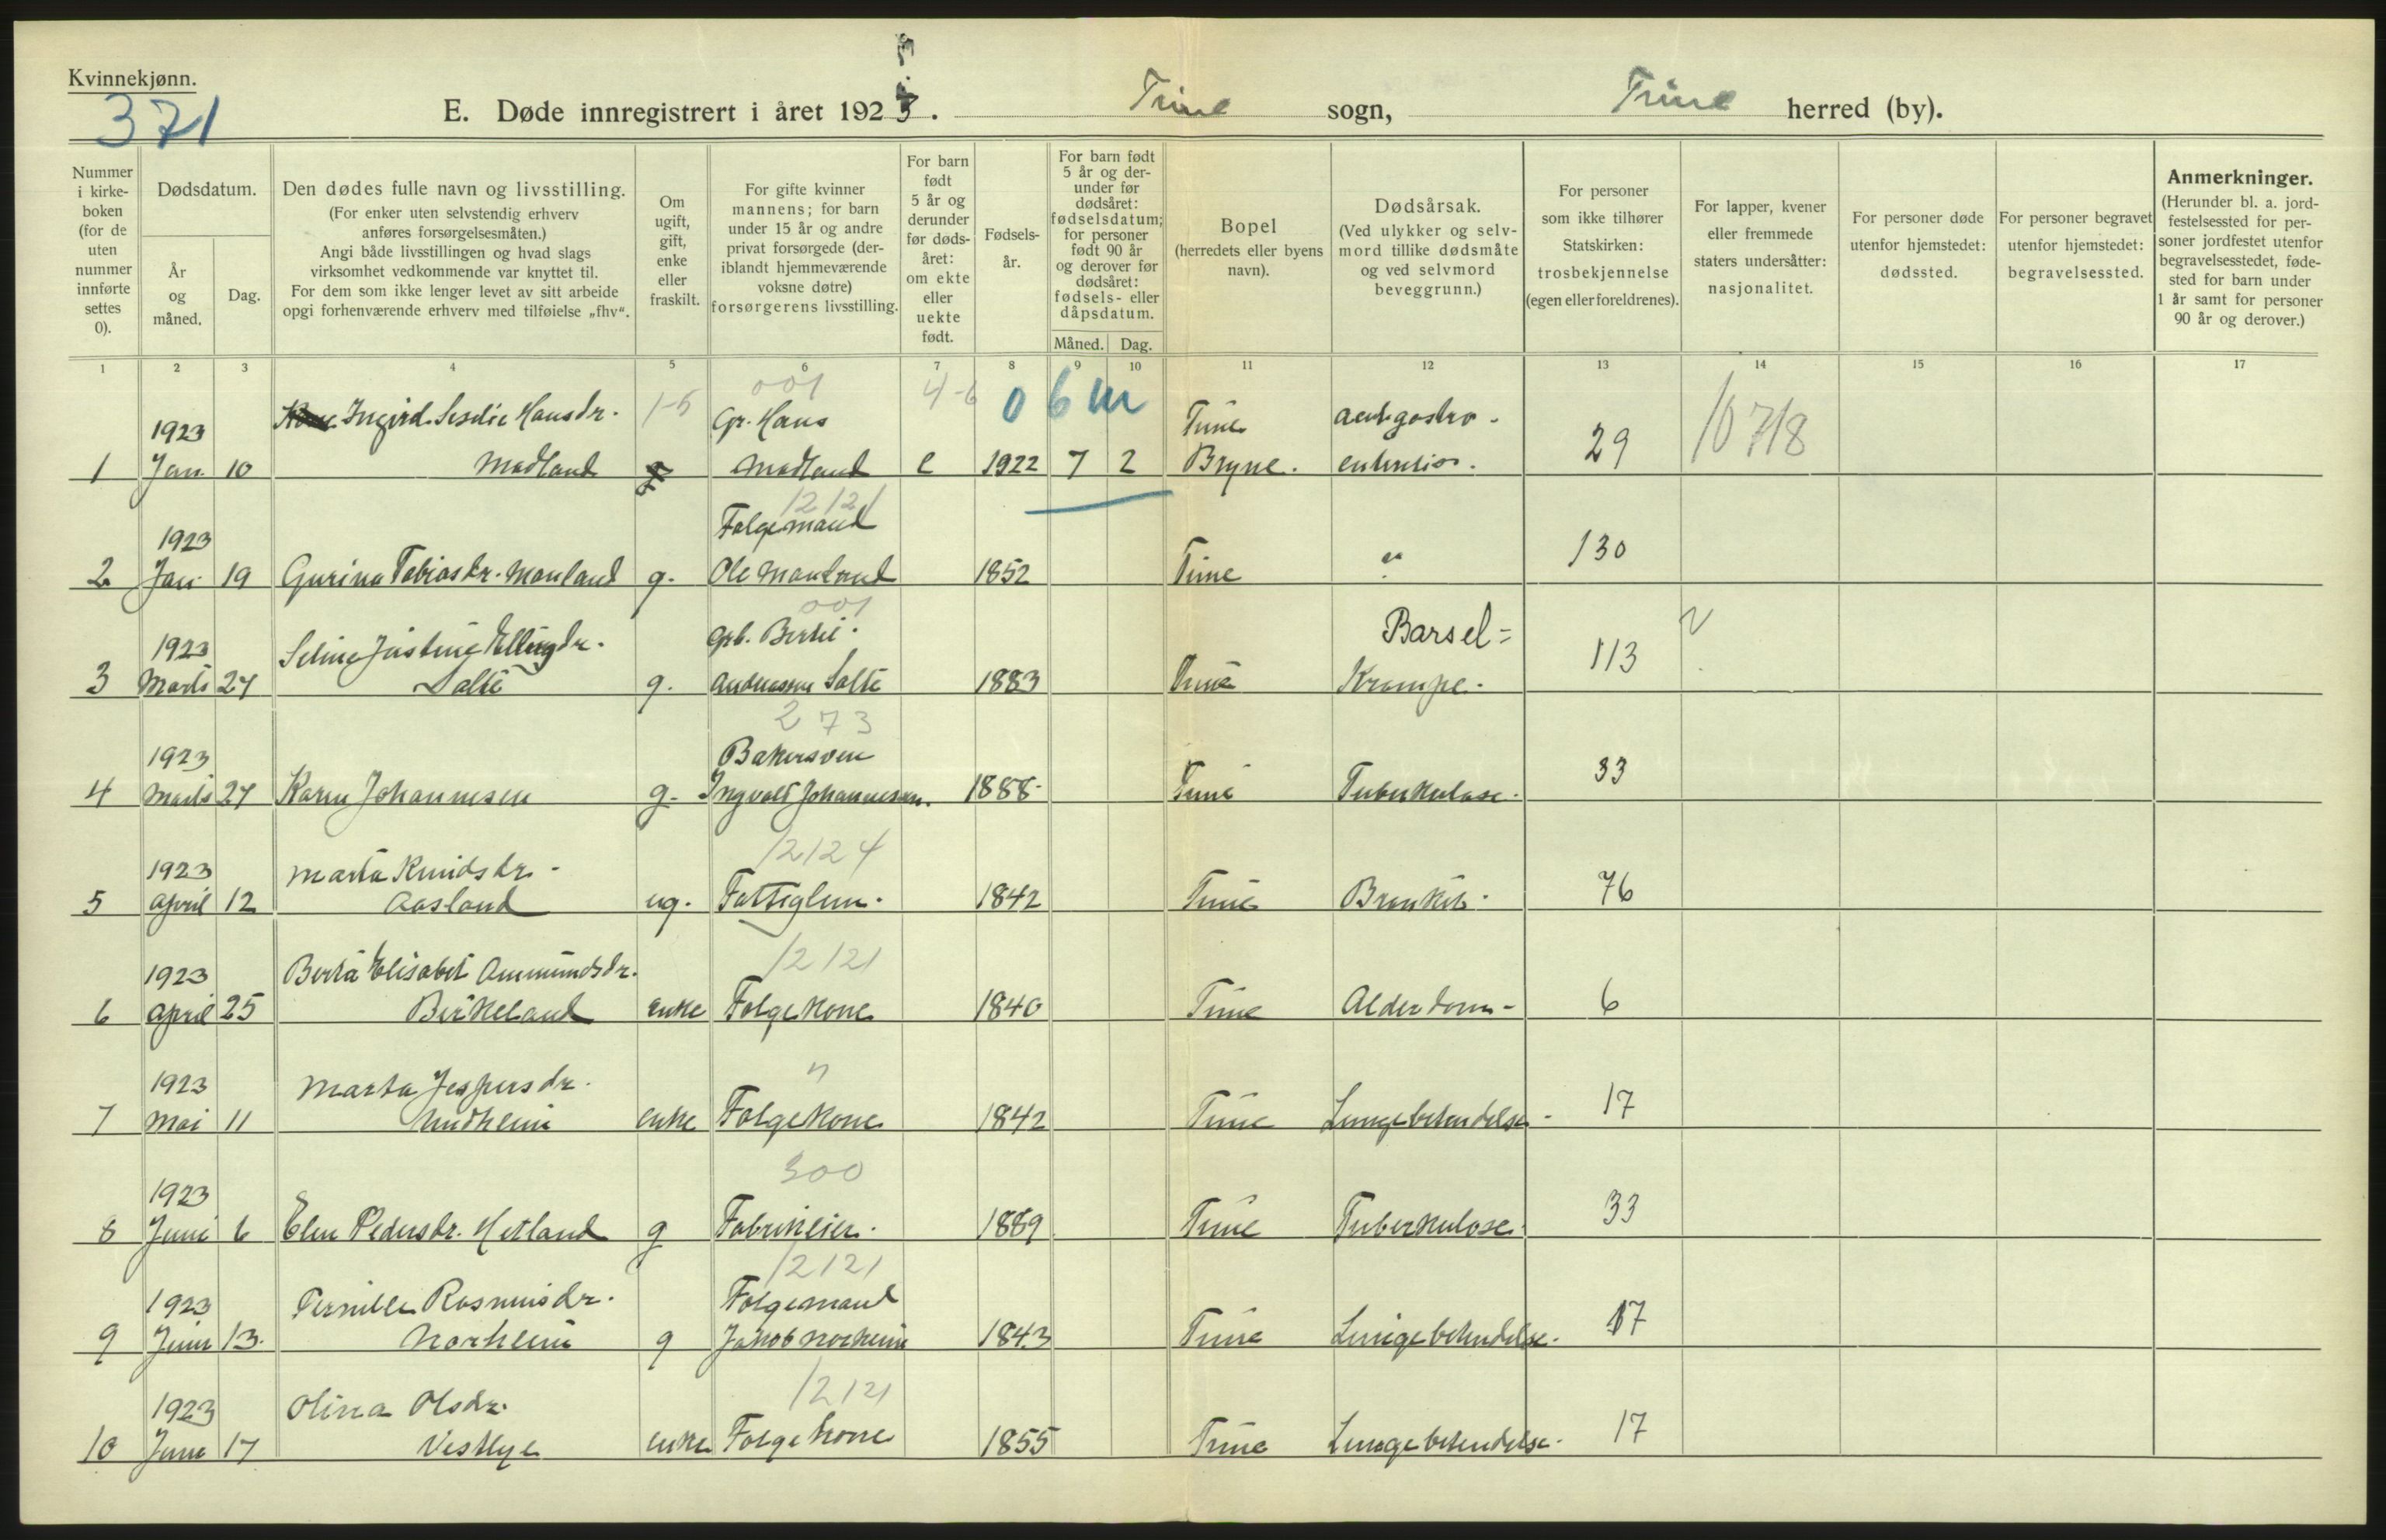 Kvinnekjønn.
371
E. Døde innregistrert i året 1923. Time sogn, Time herred (by).
Nummer i kirke-boken (for de uten nummer innførte settes 0).
Dødsdatum.
År og måned.
Dag.
Den dødes fulle navn og livsstilling.
(For enker uten selvstendig erhverv anføres forsørgelsesmåten.)
Angi både livsstillingen og hvad slags virksomhet vedkommende var knyttet til.
For dem som ikke lenger levet av sitt arbeide opgi forhenværende erhverv med tilføielse „fhv“.
Om ugift, gift, enke eller fraskilt.
For gifte kvinner mannens; for barn under 15 år og andre privat forsørgede (der-iblandt hjemmeværende voksne døtre) forsørgerens livsstilling.
For barn født 5 år og derunder før døds-året: om ekte eller uekte født.
Fødsels-år.
For barn født 5 år og der-under før dødsåret: fødselsdatum; for personer født 90 år og derover før dødsåret: fødsels- eller dåpsdatum.
Måned. Dag.
Bopel (herredets eller byens navn).
Dødsårsak.
(Ved ulykker og selv-mord tillike dødsmåte og ved selvmord beveggrunn.)
For personer som ikke tilhører Statskirken: trosbekjennelse (egen eller foreldrenes).
For lapper, kvener eller fremmede staters undersåtter: nasjonalitet.
For personer døde utenfor hjemstedet: dødssted.
For personer begravet utenfor hjemstedet: begravelsessted.
Anmerkninger.
(Herunder bl. a. jord-festelsessted for per-soner jordfestet utenfor begravelsesstedet, føde-sted for barn under 1 år samt for personer 90 år og derover.)
1 2 3 4 5 6 7 8 9 10 11 12 13 14 15 16 17
001 4-6 0 6 m
1923 Hansdr. 1-5 Gr. Hans Time 29 10718
1 Jan. 10 Madland Madland e 1922 7 2 Bryne.
12121
1923 Folgemand 130
2 Jan. 19 Gurina Tobiasdr. g. Ole 1852 Time
001
1923 Grb. Barsel= 113
3 Marts 27 Salte g. Salte 1883 Time Krampe.
273
1923 Bakersven 33
4 Marts 27 Karen Johannesen g. Ingvald Johannesen. 1888 Time Tuberkulose.
12124
1923 Marta Knudsdr. 76
5 April 12 Aasland ug. Fattiglem. 1842 Time Bronkit.
12121
1923 Berta Elisabet Ommundsdr.
6 April 25 Birkeland enke Folgekone 1840 Time Alderdom 6
"
1923 Marta Jespersdr. 17
7 Mai 11 Undheim enke Folgekone 1842 Time Lungebetendelse
300
1923 33
8 Juni 6 Elen Pedersdr. Hetland g Fabrikeier. 1889 Time Tuberkulose.
12121
1923 Pernille Rasmusdr. Folgemand 17
9 Juni 13. Norheim g Jakob Norheim 1843 Time Lungebetendelse.
12121
1923 Olina Olsdr. 17
10 Juni 17 Vestlye enke Folgekone 1855 Time Lungebetendelse.